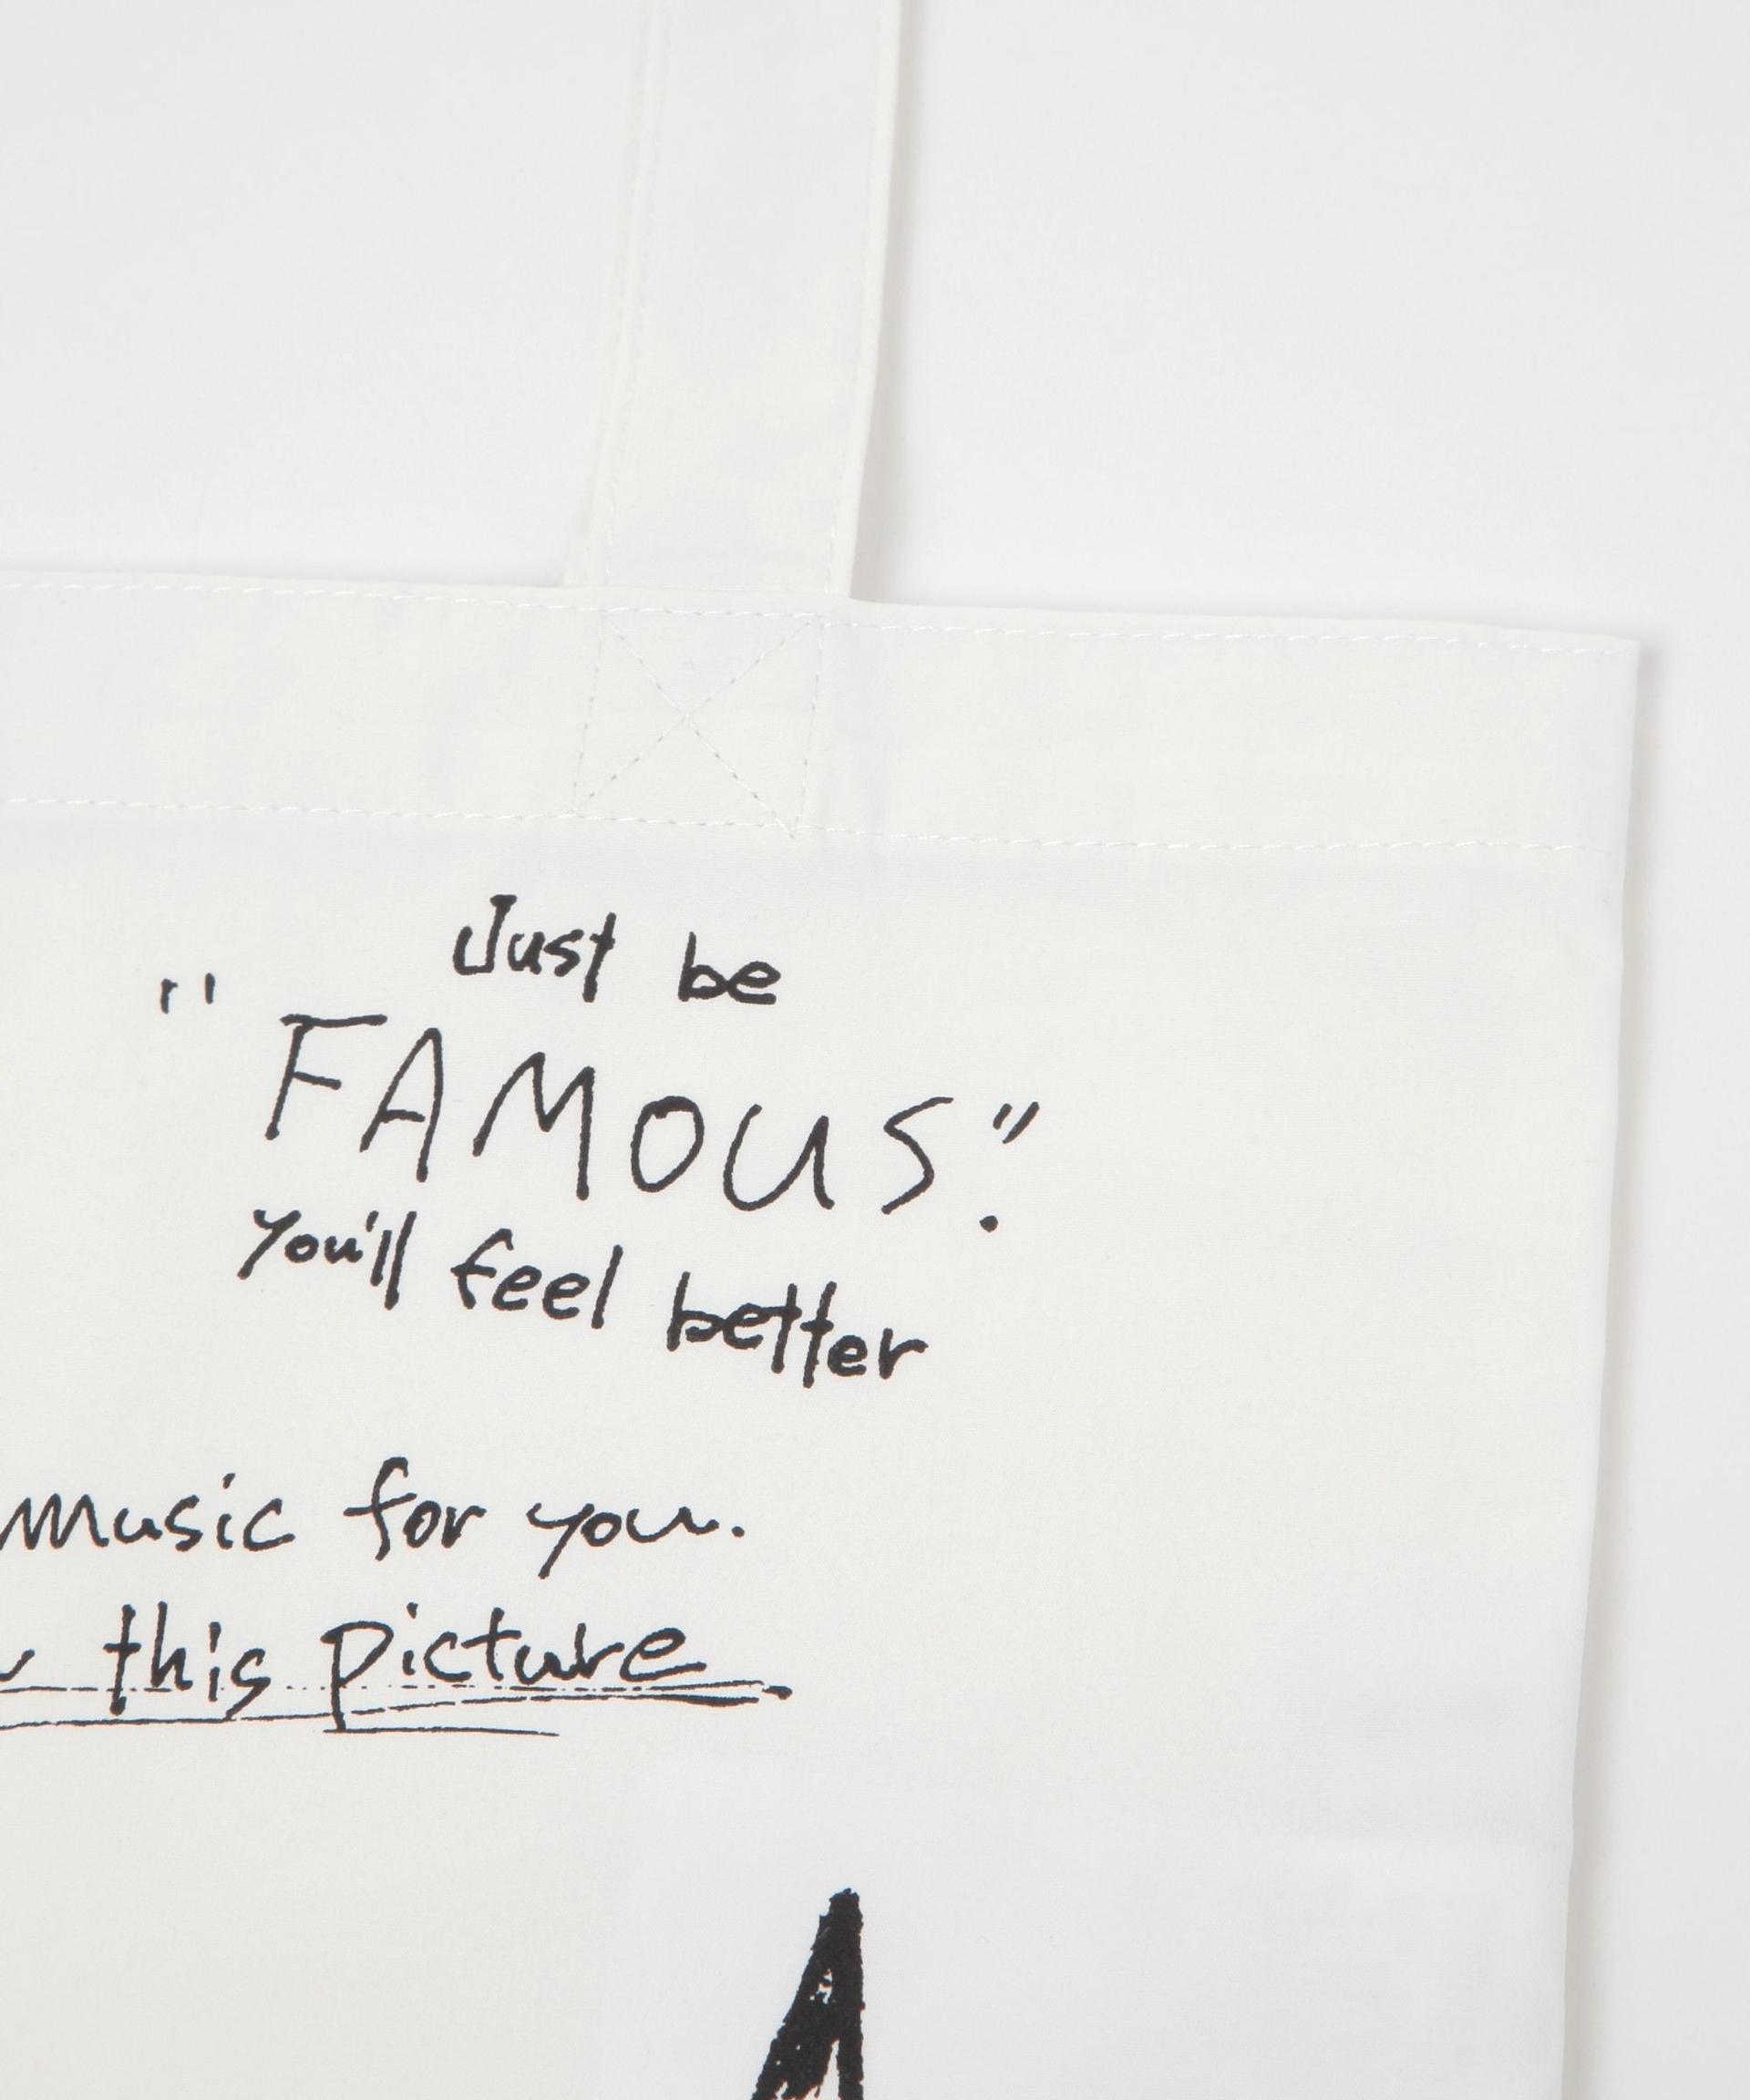 Just be
"FAMOUS."
you'll feel better
music for you.
this picture